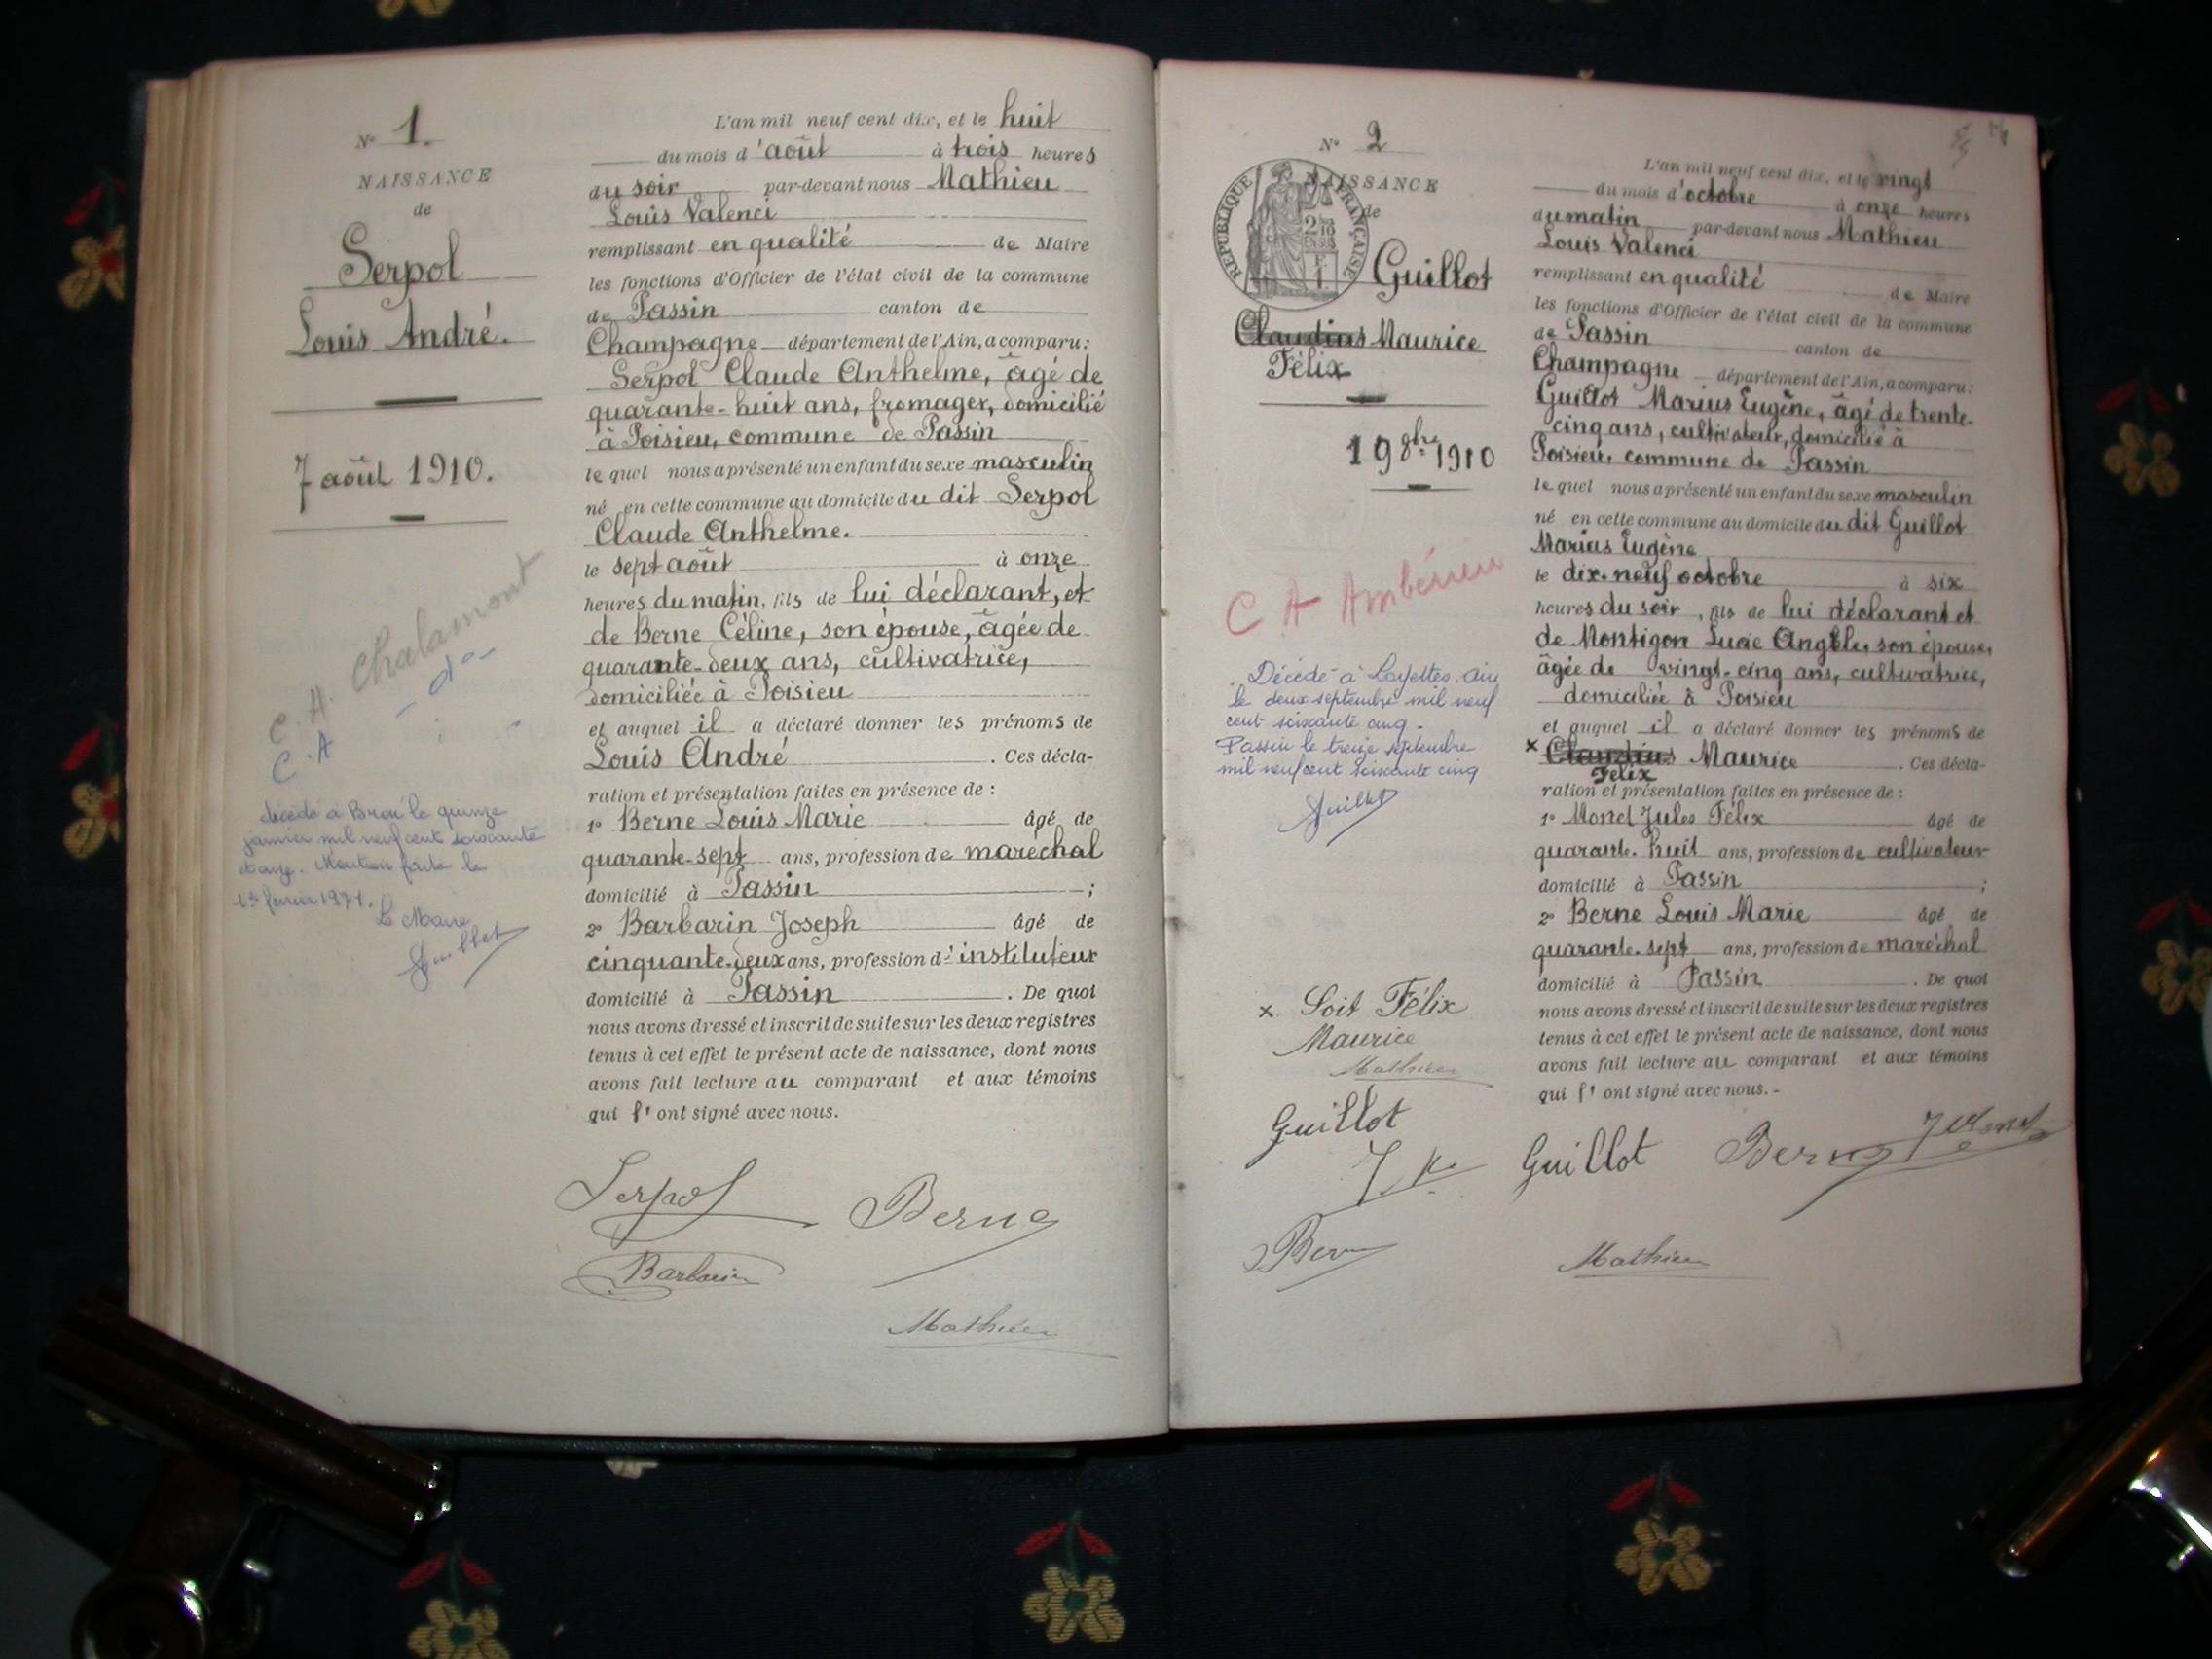 N° 1.
NAISSANCE
de
Serpol
Louis André.
7 août 1910.
C. A. Chalamont
C. A - do -
décédé à Bron le quinze
janvier mil neuf cent soixante
et onze. Mention faite le
février 1971.
Le Maire
L'an mil neuf cent dix, et le huit
du mois d'août à trois heures
du soir par-devant nous Mathieu
Louis Valenci
remplissant en qualité de Maire
les fonctions d'Officier de l'état civil de la commune
de Passin canton de
Champagne département de l'Ain, a comparu:
Serpol Claude Anthelme, âgé de
quarante-huit ans, fromager, domicilié
à Poisieu, commune de Passin
le quel nous a présenté un enfant du sexe masculin
né en cette commune au domicile du dit Serpol
Claude Anthelme.
le sept août à onze
heures du matin, fils de lui déclarant, et
de Berne Céline, son épouse, âgée de
quarante-deux ans, cultivatrice,
domiciliée à Poisieu
et auquel il a déclaré donner les prénoms de
Louis André. Ces décla-
ration et présentation faites en présence de :
1° Berne Louis Marie âgé de
quarante-sept ans, profession de maréchal
domicilié à Passin ;
2° Barbarin Joseph âgé de
cinquante-deux ans, profession d'instituteur
domicilié à Passin. De quoi
nous avons dressé et inscrit de suite sur les deux registres
tenus à cet effet le présent acte de naissance, dont nous
avons fait lecture au comparant et aux témoins
qui l'ont signé avec nous.
Serpol Berne
Barbarin
Mathieu
N° 2
NAISSANCE
de
RÉPUBLIQUE FRANÇAISE
Guillot
Claudius Maurice
Félix
19 8bre 1910
C A Ambérieu
Décédé à Loyettes, Ain
le deux septembre mil neuf
cent soixante cinq.
Passin le treize septembre
mil neuf cent soixante cinq
x Soit Félix
Maurice
Mathieu
Guillot
Bern
L'an mil neuf cent dix, et le vingt
du mois d'octobre à onze heures
du matin par-devant nous Mathieu
Louis Valenci
remplissant en qualité de Maire
les fonctions d'Officier de l'état civil de la commune
de Passin canton de
Champagne département de l'Ain, a comparu:
Guillot Marius Eugène, âgé de trente-
cinq ans, cultivateur, domicilié à
Poisieu, commune de Passin
le quel nous a présenté un enfant du sexe masculin
né en cette commune au domicile du dit Guillot
Marius Eugène
le dix-neuf octobre à six
heures du soir, fils de lui déclarant et
de Montigon Lucie Angèle, son épouse,
âgée de vingt-cinq ans, cultivatrice,
domiciliée à Poisieu
et auquel il a déclaré donner les prénoms de
x Claudius Maurice. Ces décla-
Félix
ration et présentation faites en présence de :
1° Monet Jules Félix âgé de
quarante-huit ans, profession de cultivateur
domicilié à Passin ;
2° Berne Louis Marie âgé de
quarante-sept ans, profession de maréchal
domicilié à Passin. De quoi
nous avons dressé et inscrit de suite sur les deux registres
tenus à cet effet le présent acte de naissance, dont nous
avons fait lecture au comparant et aux témoins
qui l'ont signé avec nous. -
Guillot Berne
Mathieu